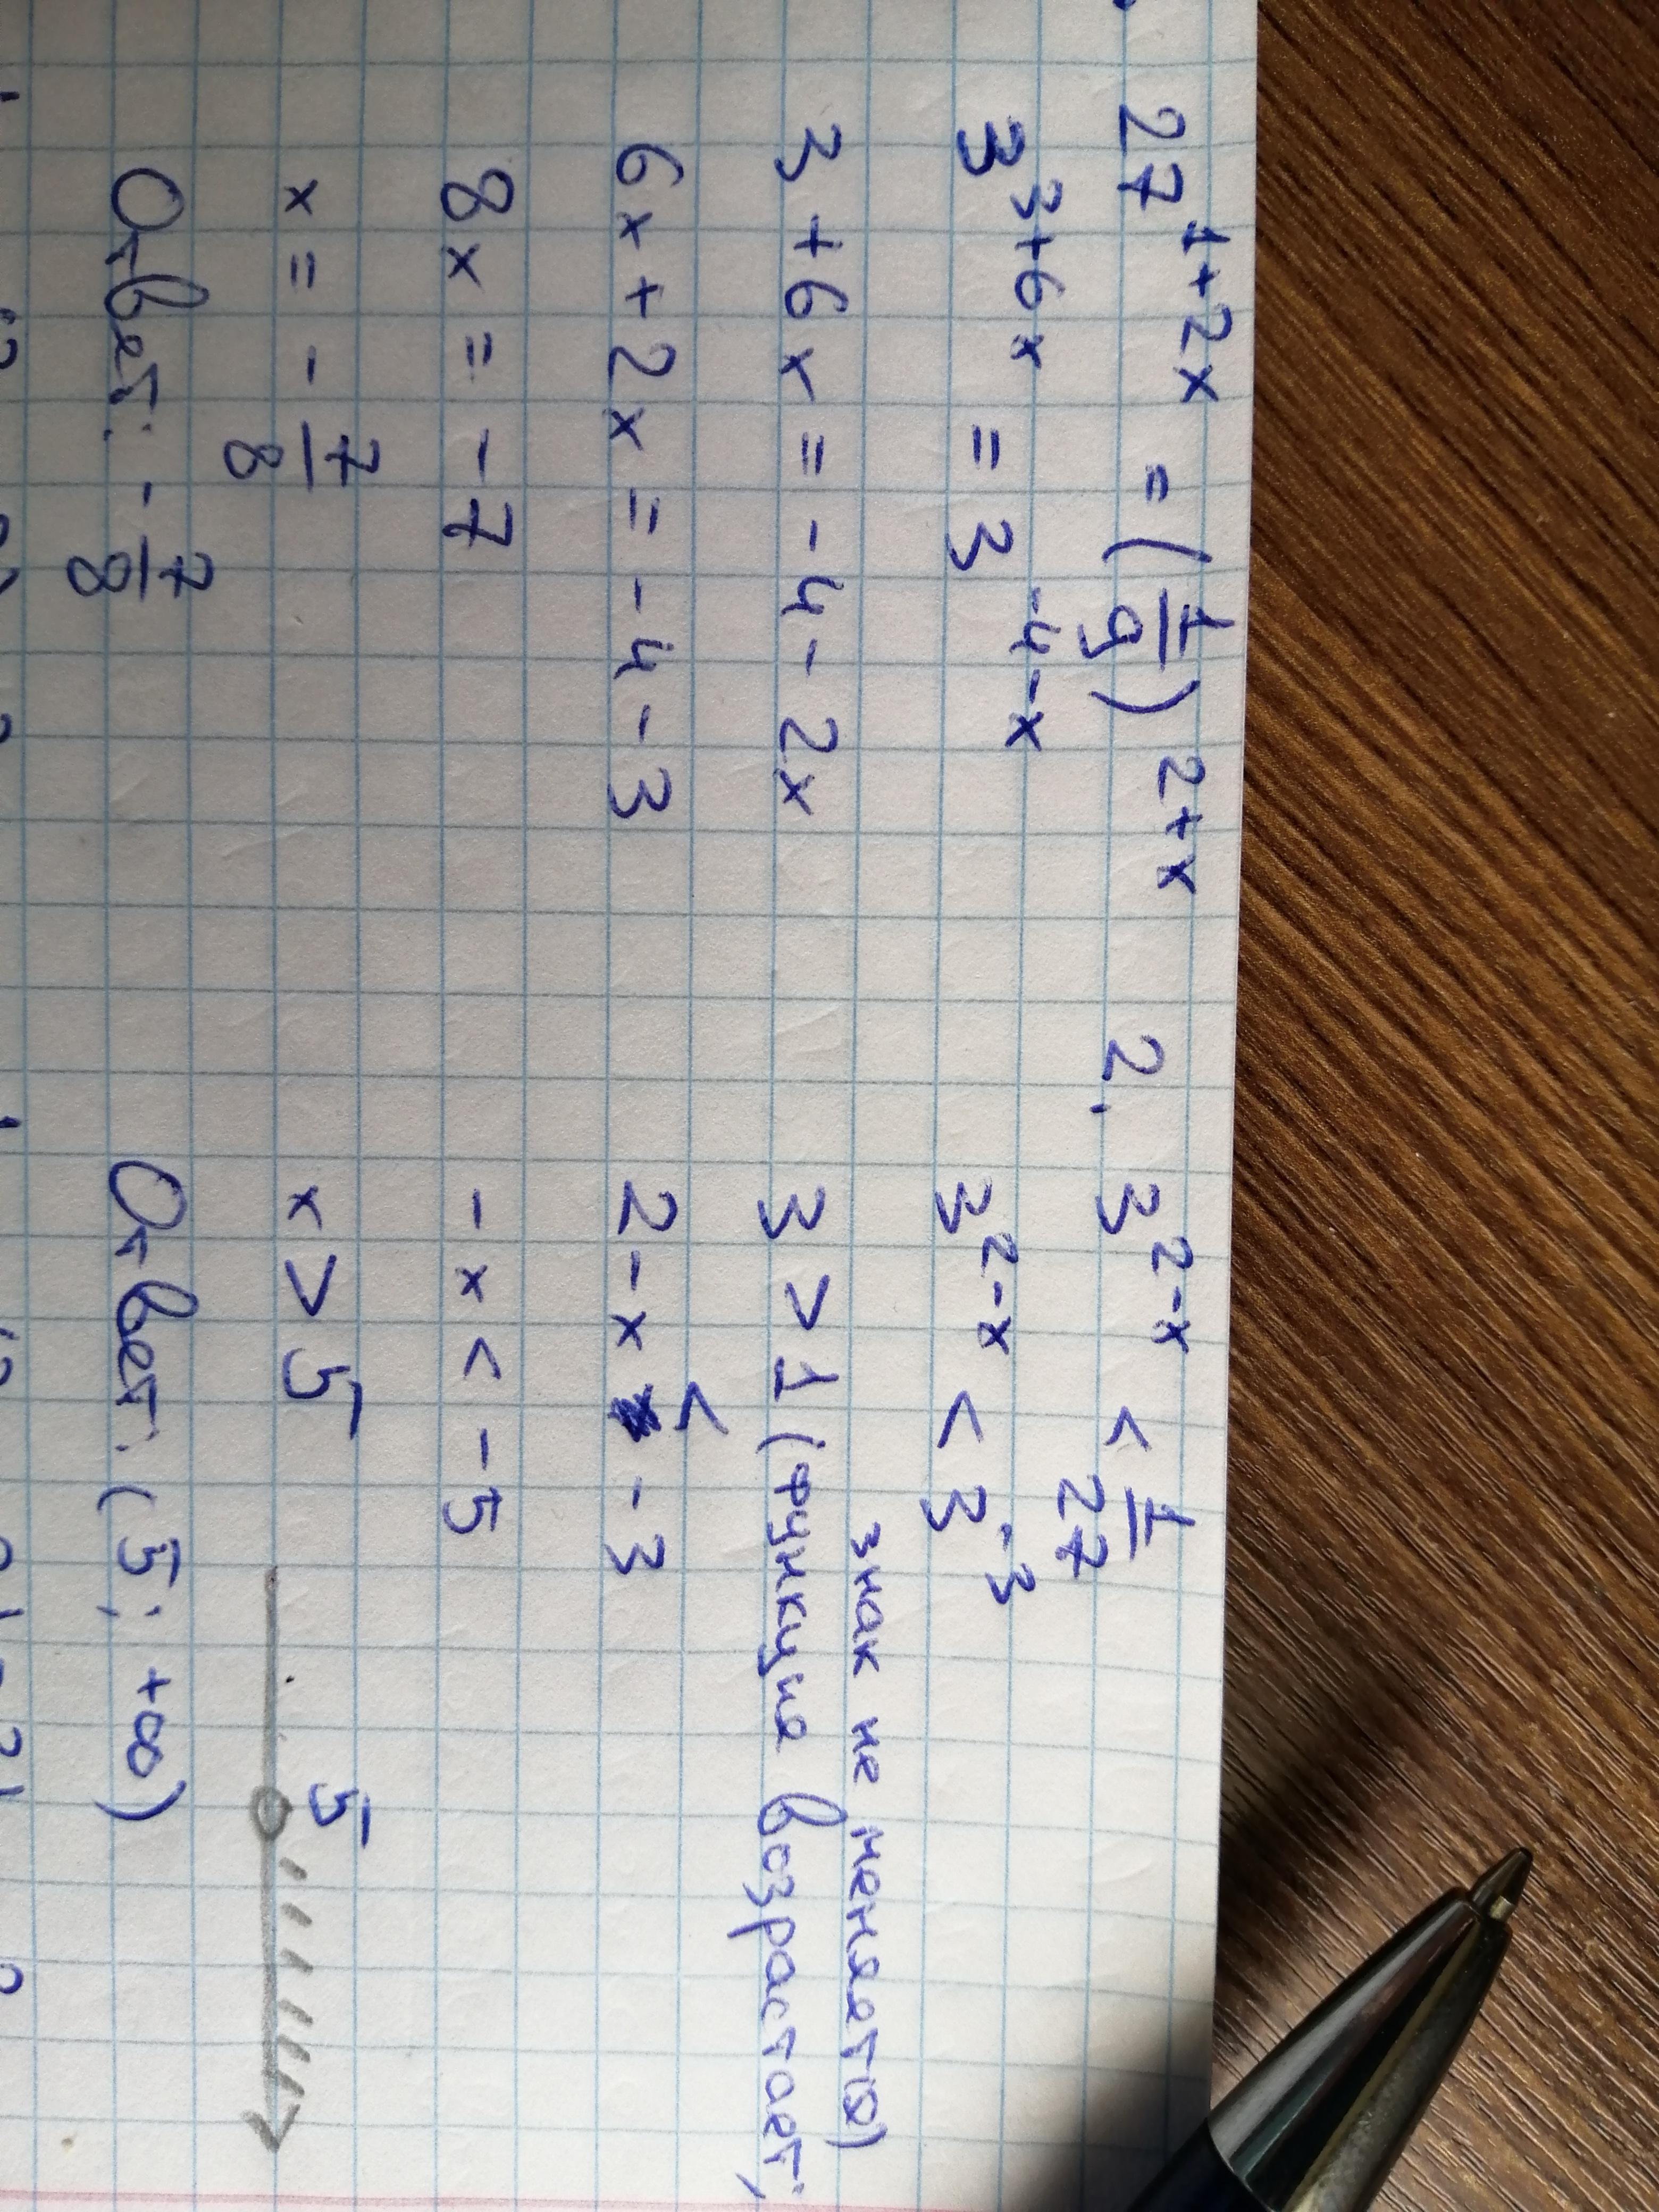 27^{1+2x} = (1/9)^{2+x}
3^{3+6x} = 3^{-4-x}
3 + 6x = -4 - 2x
6x + 2x = -4 - 3
8x = -7
x = - 7/8
Ответ: - 7/8
2. 3^{2-x} < 1/27
3^{2-x} < 3^{-3}
3 > 1 (функция возрастает;
знак не меняется)
2 - x < -3
-x < -5
x > 5
5
Ответ: (5; +∞)